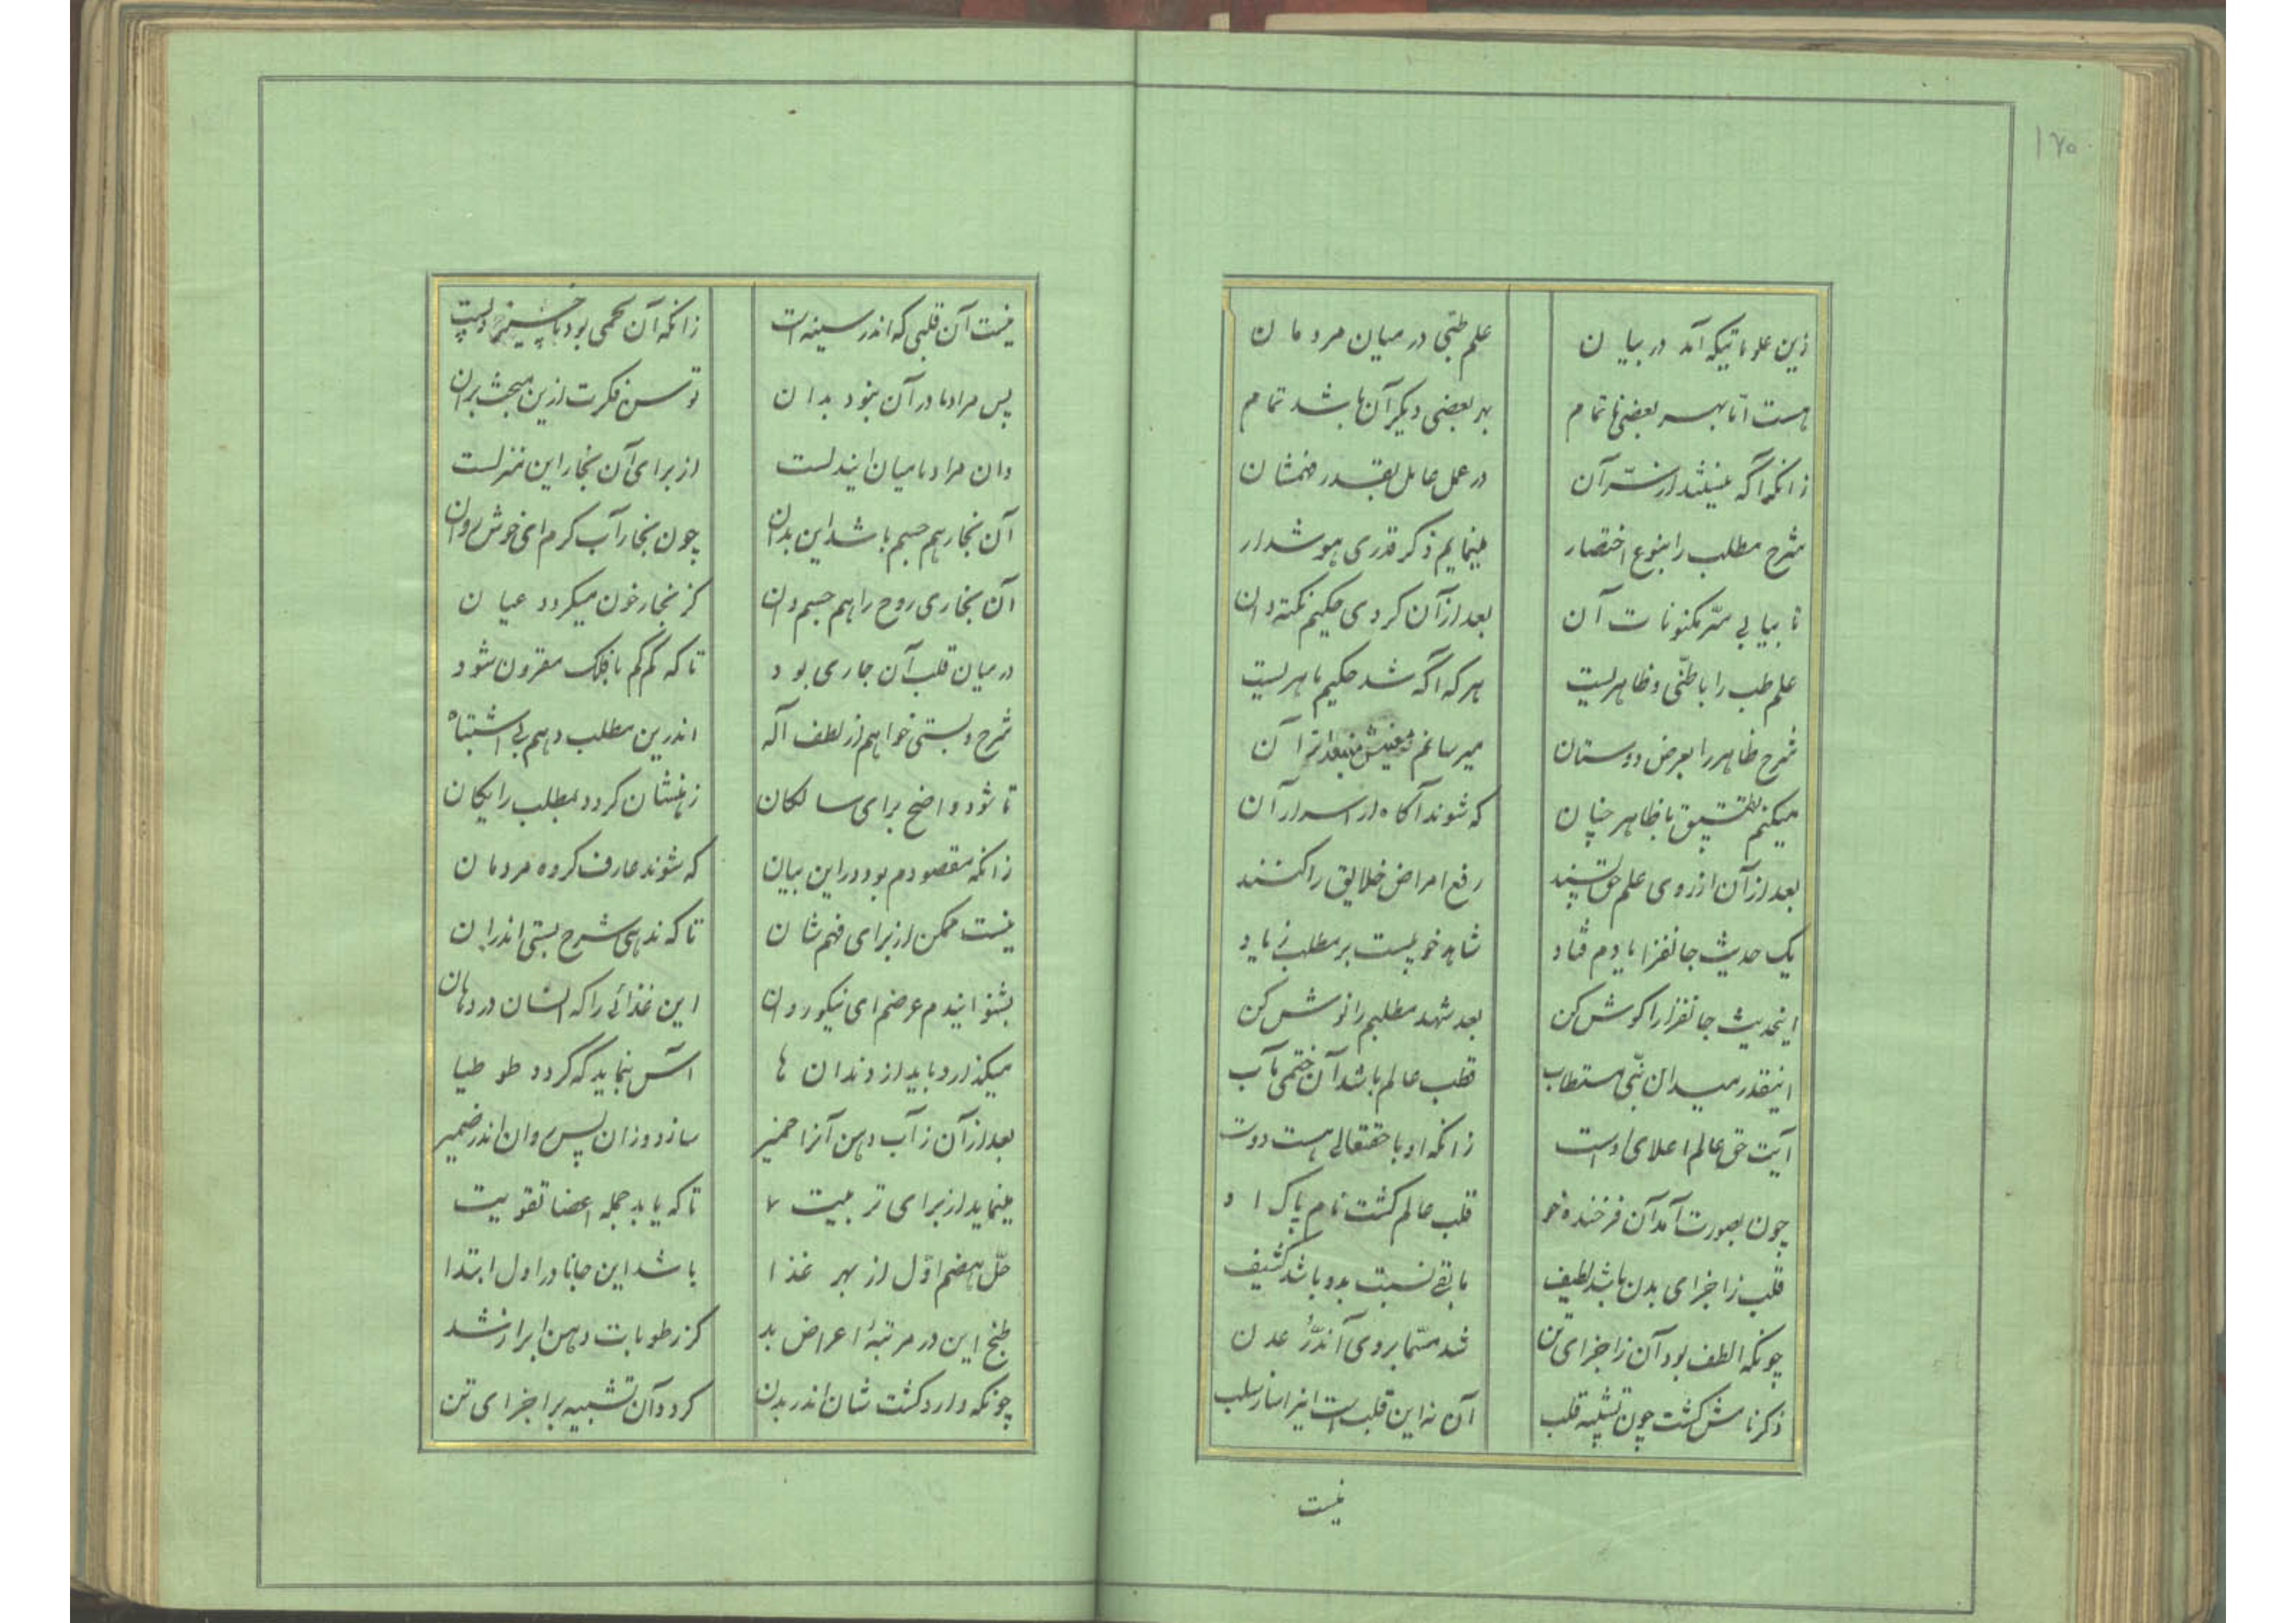 ۱۷۰
زین علوماتیکه آمد در بیان
علم طبّی در میان مردمان
هست امّا بهر بعضی ناتمام
بهر بعضی دیگر آن باشد تمام
زانکه آگه نیستند از سرّ آن
در عمل عامل بقدر فهمشان
شرح مطلب را بنوع اختصار
مینمایم ذکر قدری هوشدار
تا بیابی سّر مکنونات آن
بعد از آن گردی حکیم نکته دان
علم طب را باطنّی و ظاهریست
هر که آگه شد حکیم ماهریست
شرح ظاهر را بعرض دوستان
میرسانم بعد از آن
میکنم تطبیق با ظاهر چنان
که شوند آگاه از اسرار آن
بعد از آن از روی علم حق
رفع امراض خلایق را کنند
یک حدیث جانفزا یادم فتاد
شاهد خوبیست بر مطلب زیاد
اینحدیث جانفزا را گوش کن
بعد شهد مطلبم را نوش کن
اینقدر میدان نبّی مستطاب
قطب عالم باشد آن ختمی مآب
آیت حق عالم اعلای اوست
زانکه او با حقتعالی هست دوست
چون بصورت آمد آن فرخنده خو
قلب عالم گشت نام پاک او
قلب ز اجزای بدن باشد لطیف
مابقی نسبت بدو باشد کثیف
چونکه الطف بود آن ز اجزای تن
شد مسّما بروی آندُّر عدن
ذکر نامش گشت چون تشبیه قلب
آن نه این قلب است
نیست
نیست آن قلبی که اندر سینه است
زانکه آن لحمی بود
پس مراد ما در آن نبود بدان
توسن فکرت ازین مبحث بران
وان مراد ما میان ایندلست
از برای آن بخار این منزلست
آن بخار هم جسم باشد این بدان
چون بخار آب گرم ای خوش روان
آن بخاری روح را هم جسم دان
کز بخار خون میگردد عیان
در میان قلب آن جاری بود
تا که کم کم با فلک مقرون شود
شرح و بستی خواهم از لطف آله
اندرین مطلب دهم بی اشتباه
تا شود واضح برای سالکان
ذهنشان گردد بمطلب رایگان
زانکه مقصودم بود در این بیان
که شوند عارف گروه مردمان
نیست ممکن از برای فهم شان
تا که ندهی شرح بستی اندران
بشنو ایندم عرضم ای نیکو روان
این غذائی را که انسان در دهان
میگذارد باید از دندان ها
آسش بنماید که گردد طوطیا
بعد از آن ز آب دهن آنرا خمیر
سازد و زان پس روان اندر ضمیر
مینماید از برای تربیت
تا که یابد جمله اعضا تقویت
حلّ هضم اوّل از بهر غذا
باشد این جانا در اول ابتدا
طبخ این در مرتبهٔ اعراض بد
کز رطوبات دهن ابراز شد
چونکه وارد گشت شان اندر بدن
گردد آن تشبیه بر اجزای تن